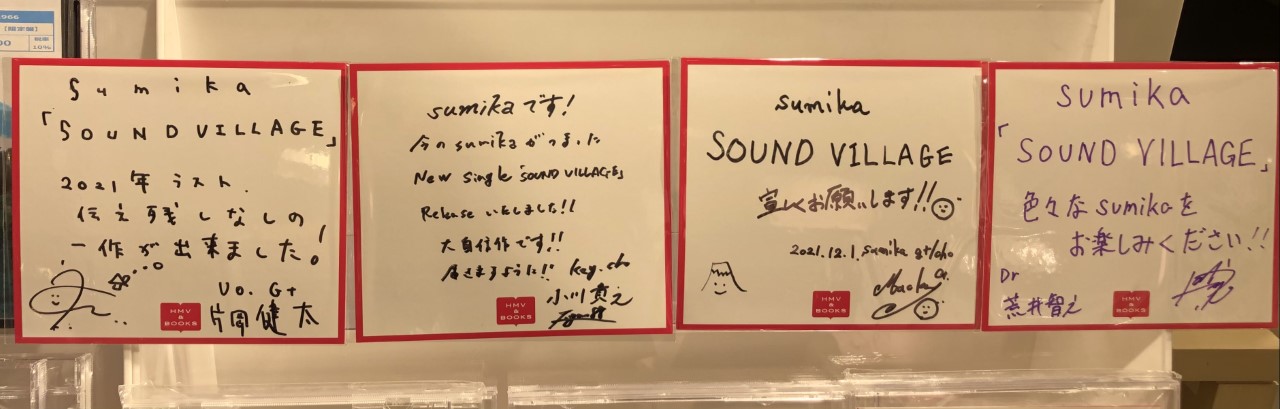 966
【限定盤】
00
税率
10%
sumika
「SOUND VILLAGE」
2021年ラスト、
伝え残しなしの
一作が出来ました!
Vo. Gt
片岡健太
HMV
&
BOOKS
sumikaです!
今のsumikaがつまった
New Single「SOUND VILLAGE」
Releaseいたしました!!
大自信作です!!
届きますように!! key.cho
小川貴之
HMV
&
BOOKS
sumika
SOUND VILLAGE
宜しくお願いします!!
2021.12.1. sumika gt/cho
HMV
&
BOOKS
sumika
「SOUND VILLAGE」
色々なsumikaを
お楽しみください!!
Dr
荒井智之
HMV
&
BOOKS